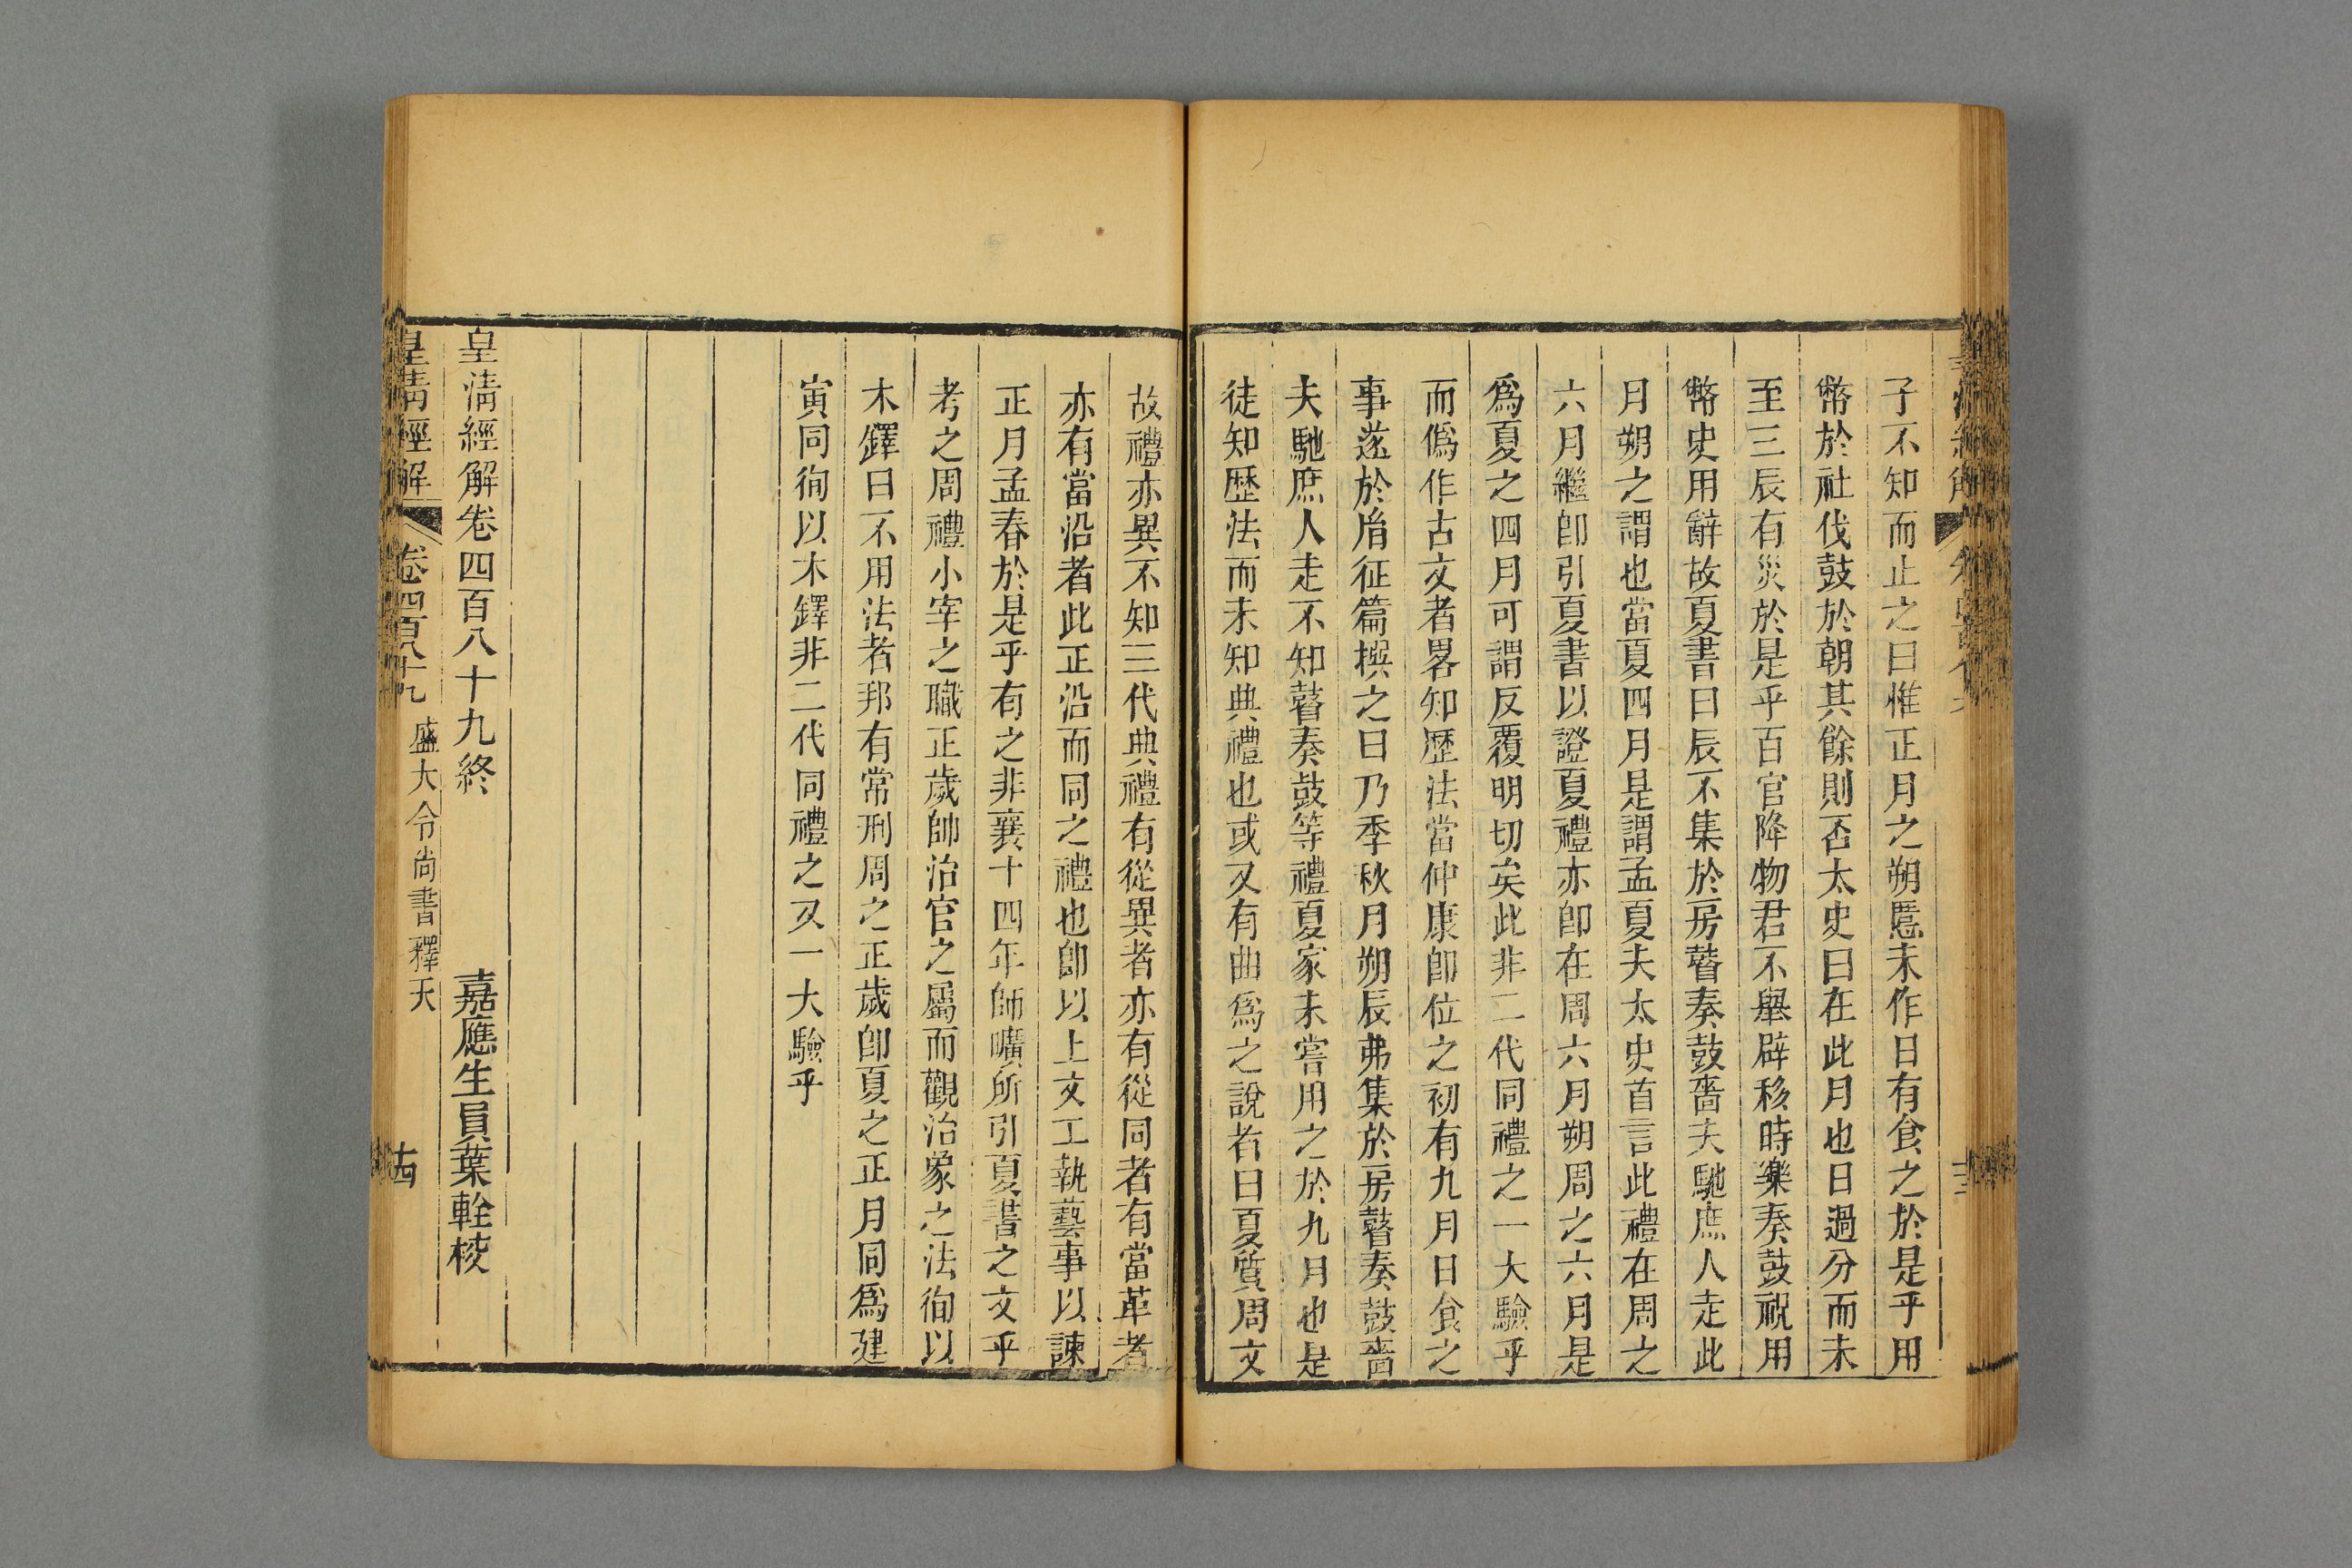 子不知而止之曰惟正月之朔慝未作日有食之於是乎用
幣於社伐鼓於朝其餘則否太史曰在此月也日過分而未
至三辰有災於是乎百官降物君不舉辟移時樂奏鼓祝用
幣史用辭故夏書曰辰不集於房瞽奏鼓嗇夫馳庶人走此
月朔之謂也當夏四月是謂孟夏夫太史首言此禮在周之
六月繼卽引夏書以證夏禮亦卽在周六月朔周之六月是
爲夏之四月可謂反覆明切矣此非二代同禮之一大驗乎
而僞作古文者畧知歷法當仲康卽位之初有九月日食之
事遂於胤征篇撰之曰乃季秋月朔辰弗集於房瞽奏鼓嗇
夫馳庶人走不知瞽奏鼓等禮夏家未嘗用之於九月也是
徒知歷法而未知典禮也或又有曲爲之說者曰夏質周文
故禮亦異不知三代典禮有從異者亦有從同者有當革者
亦有當沿者此正沿而同之禮也卽以上文工執藝事以諫
正月孟春於是乎有之非襄十四年師曠所引夏書之文乎
考之周禮小宰之職正歲帥治官之屬而觀治象之法徇以
木鐸曰不用法者邦有常刑周之正歲卽夏之正月同爲建
寅同徇以木鐸非二代同禮之又一大驗乎
皇淸經解卷四百八十九終 嘉應生員葉輇棱
皇淸經解 卷四百八十九 盛大令尚書釋天 十四